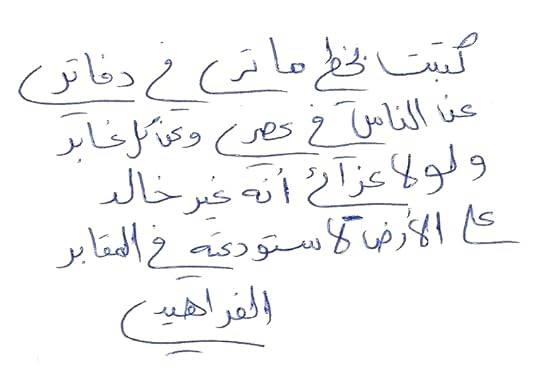 كتبت بخط ما ترى في دفاترى
عن الناس في عصرى وعن كل غابر
ولولا عزائى أنه غير خالد
على الأرض لاستودعته في المقابر
الفراهيدى